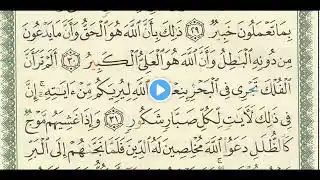 بِمَا تَعْمَلُونَ خَبِيرٌ ٢٩ ذَٰلِكَ بِأَنَّ ٱللَّهَ هُوَ ٱلْحَقُّ وَأَنَّ مَا يَدْعُونَ
مِن دُونِهِ ٱلْبَٰطِلُ وَأَنَّ ٱللَّهَ هُوَ ٱلْعَلِىُّ ٱلْكَبِيرُ ٣٠ أَلَمْ تَرَ أَنَّ
ٱلْفُلْكَ تَجْرِى فِى ٱلْبَحْرِ لِيُرِيَكُم مِّنْ ءَايَٰتِهِۦٓ إِنَّ
فِى ذَٰلِكَ لَءَايَٰتٍ لِّكُلِّ صَبَّارٍ شَكُورٍ ٣١ وَإِذَا غَشِيَهُم مَّوْجٌ
كَٱلظُّلَلِ دَعَوُا۟ ٱللَّهَ مُخْلِصِينَ لَهُ ٱلدِّينَ فَلَمَّا نَجَّىٰهُمْ إِلَى ٱلْبَرِّ